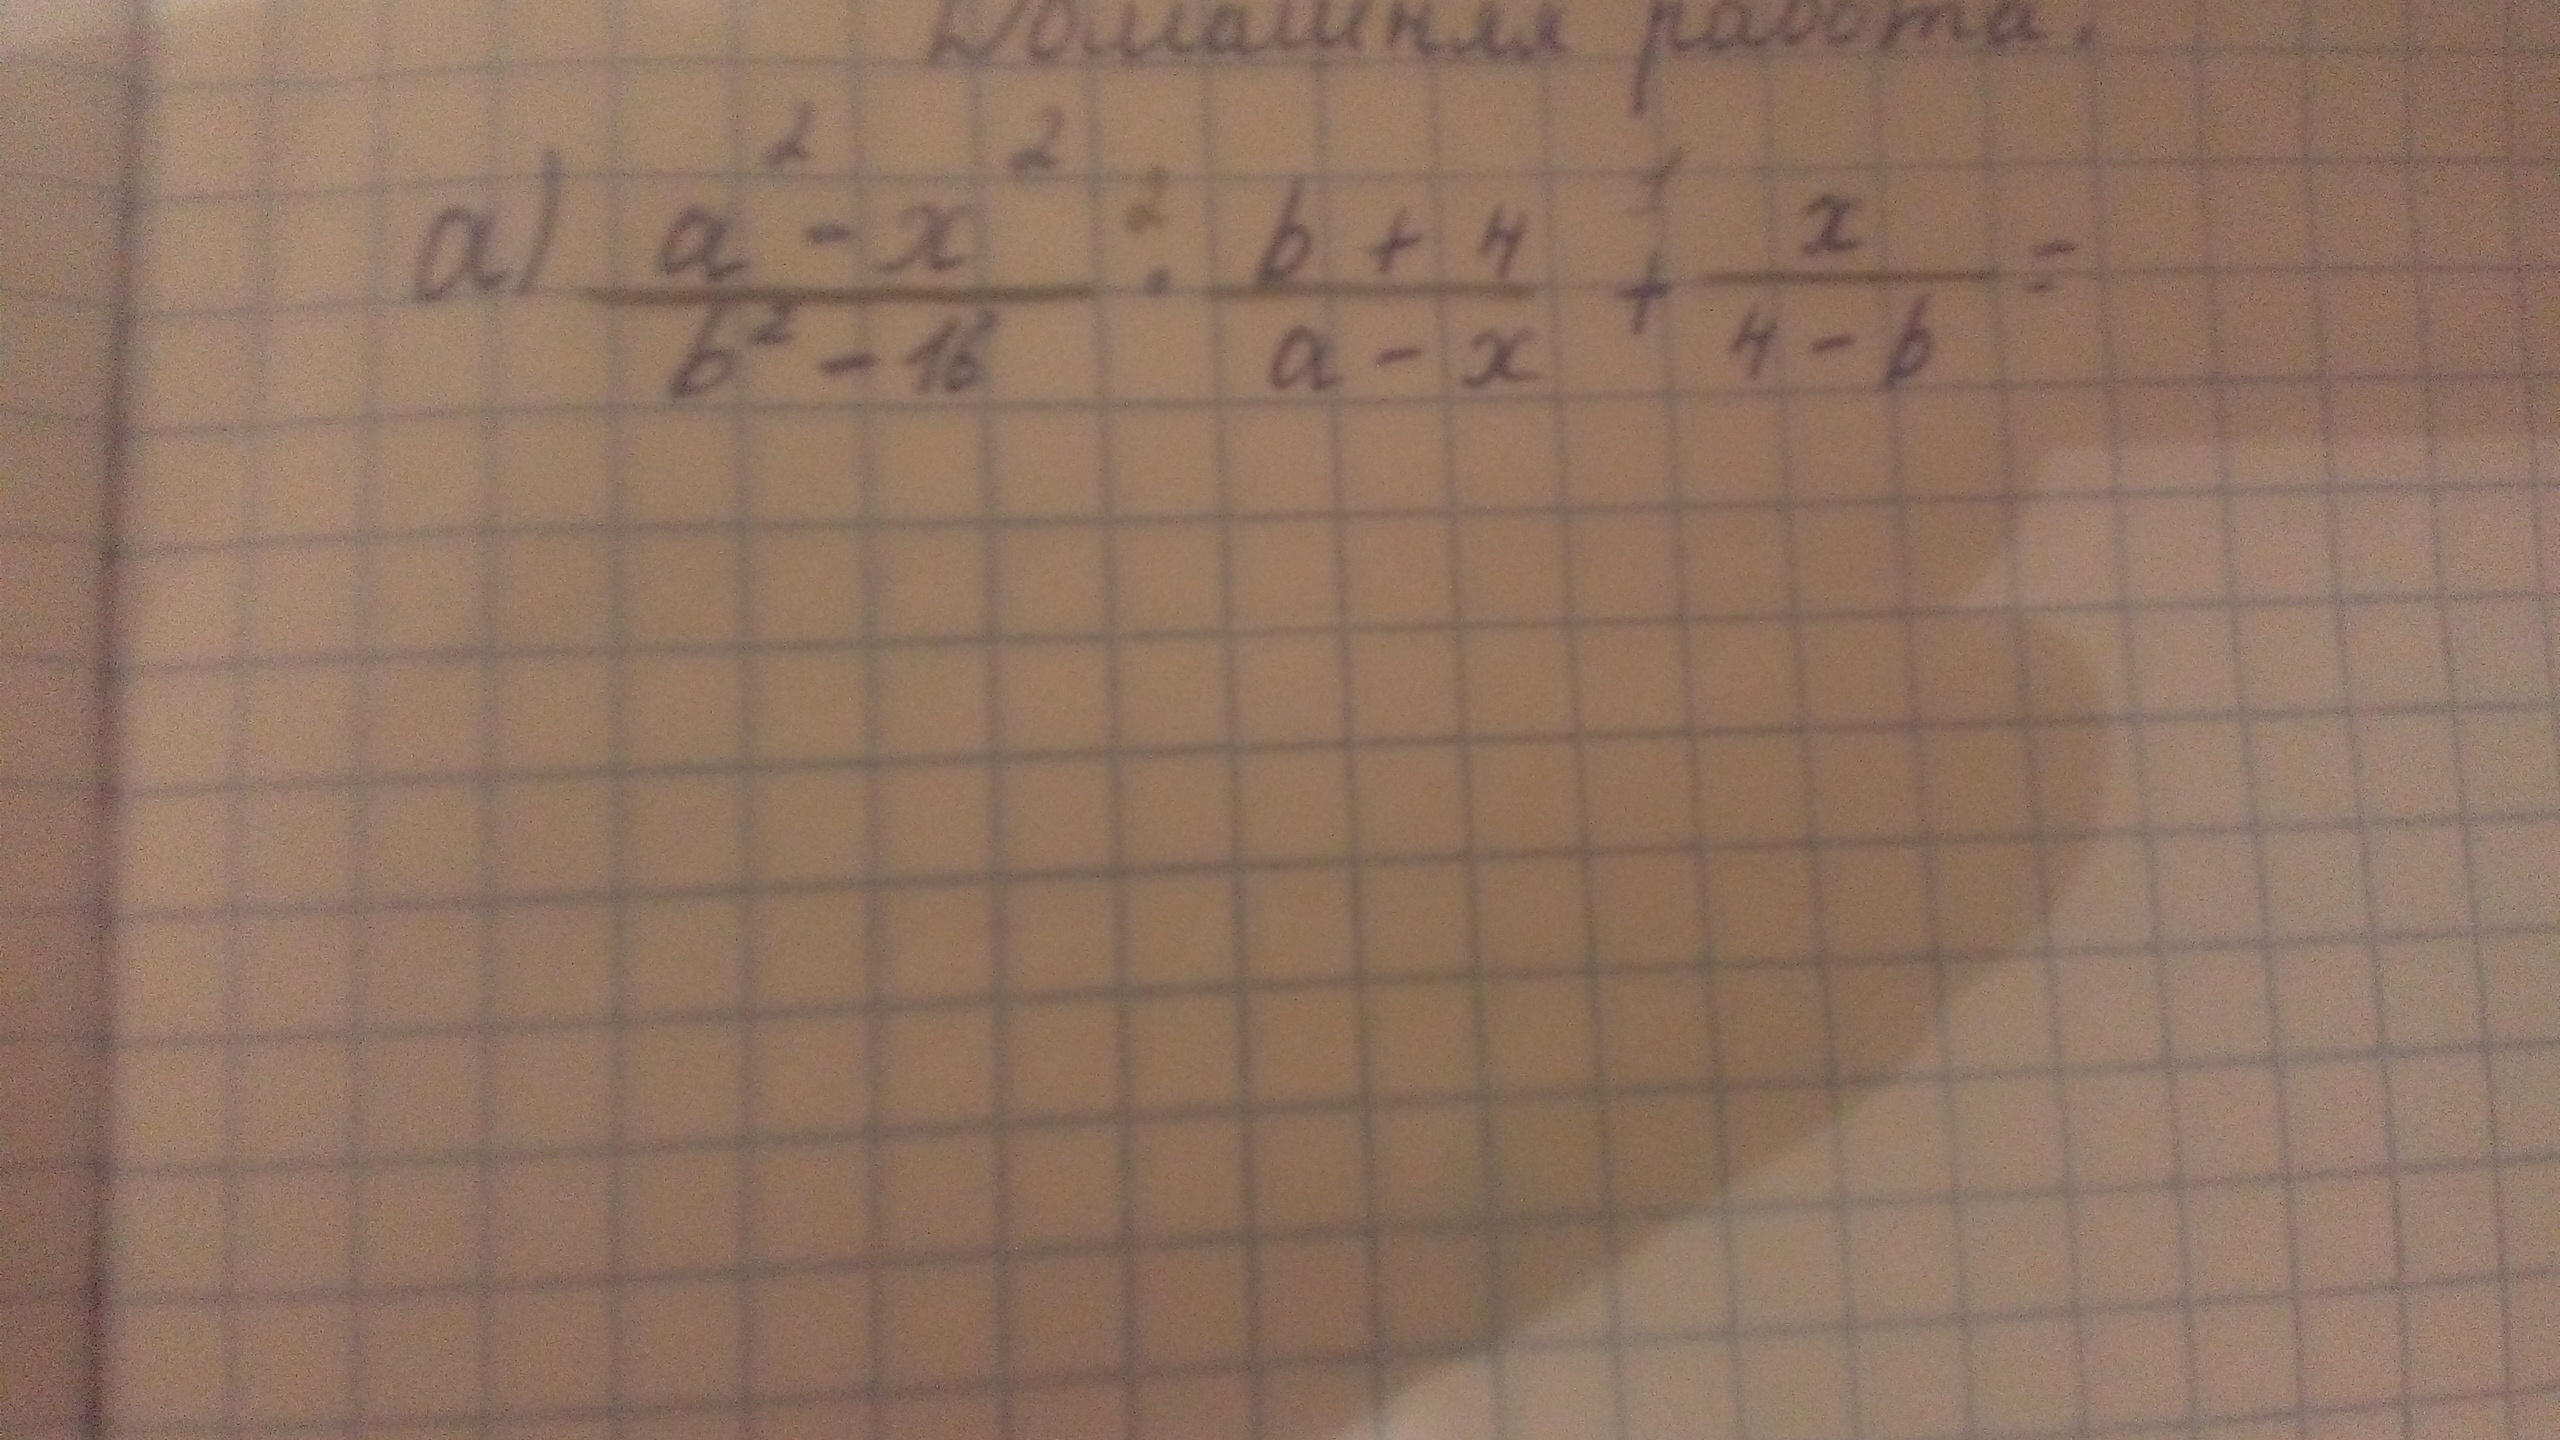 Домашняя работа.
а) (a² - x²)/(b² - 16) · (b + 4)/(a - x) + x/(4 - b) =